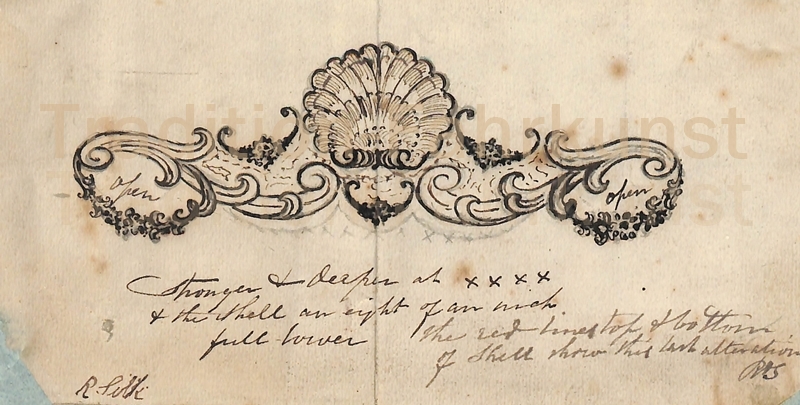 Tradition Uhrkunst
open
open
Stronger & deeper at x x x x
& the shell an eight of an inch
full lower
the red lines top & bottom
of shell show this last alteration
R. Silk